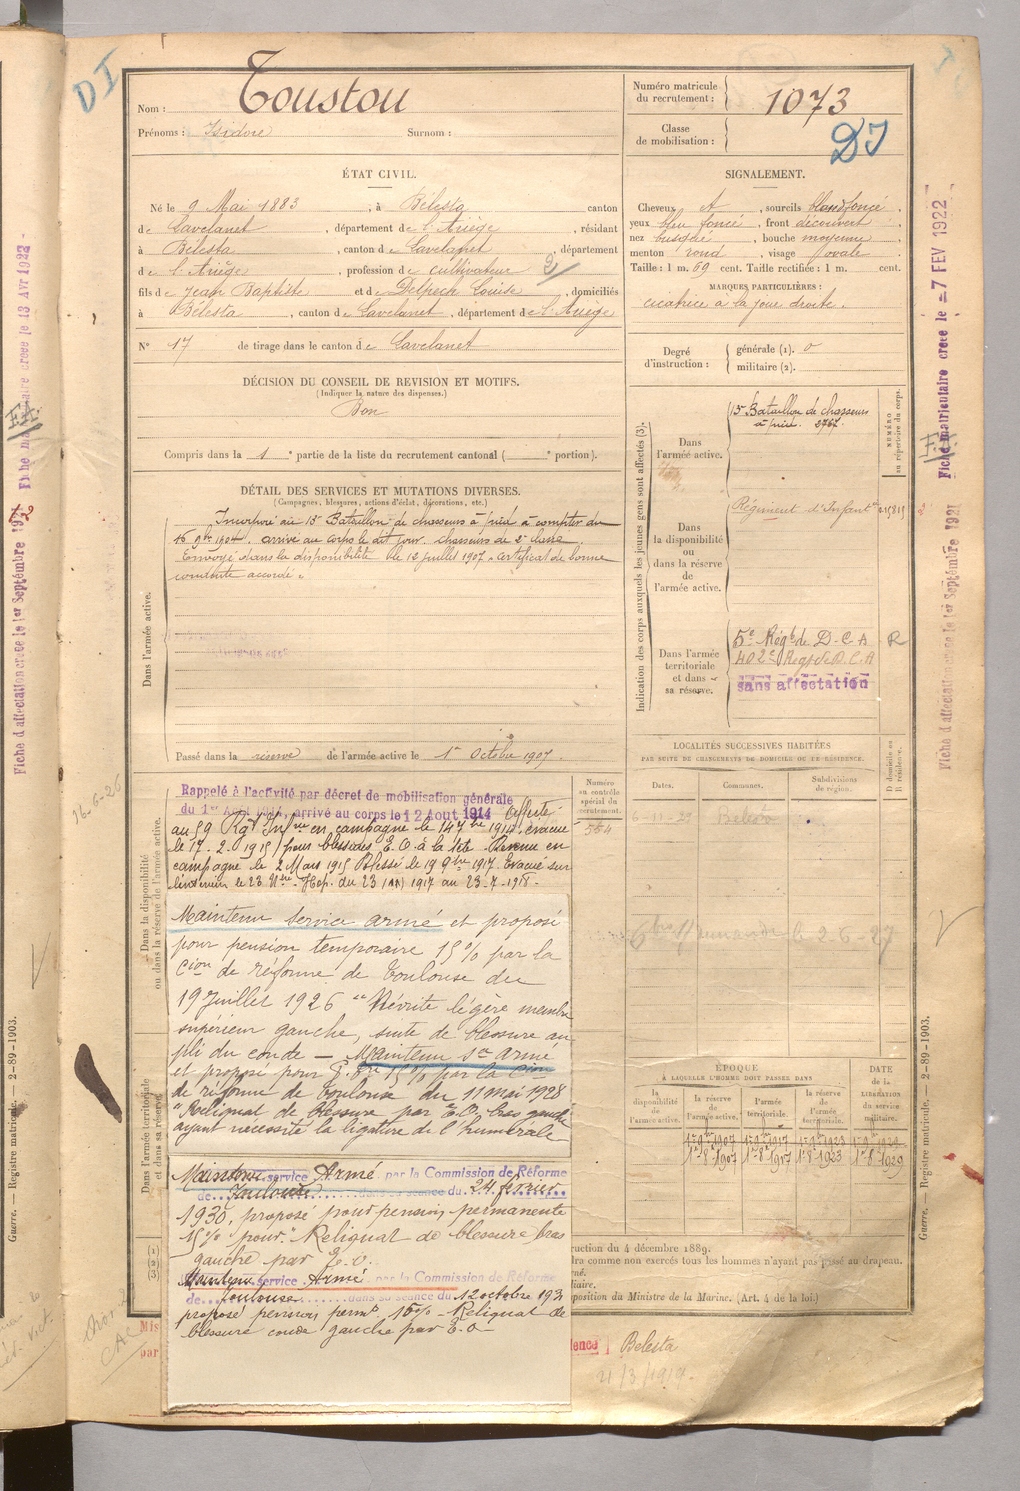 DI
Nom : Toustou
Prénoms : Isidore Surnom :
Numéro matricule du recrutement : 1073
Classe de mobilisation :
DI
ÉTAT CIVIL.
Né le 9 Mai 1883, à Bélesta canton
de Lavelanet, département de l'Ariège, résidant
à Bélesta, canton de Lavelanet, département
de l'Ariège, profession de cultivateur 2/
fils de Jean Baptiste et de Delpech Louise, domiciliés
à Bélesta, canton de Lavelanet, département de l'Ariège
N° 17 de tirage dans le canton de Lavelanet
SIGNALEMENT.
Cheveux , sourcils blond foncé,
yeux bleu foncé, front découvert
nez busqué, bouche moyenne
menton rond, visage ovale
Taille : 1 m. 69 cent. Taille rectifiée : 1 m. cent.
MARQUES PARTICULIÈRES :
cicatrice à la joue droite.
Degré d'instruction : générale (1). 0
militaire (2).
DÉCISION DU CONSEIL DE REVISION ET MOTIFS.
(Indiquer la nature des dispenses.)
Bon
Compris dans la 1e partie de la liste du recrutement cantonal ( e portion).
DÉTAIL DES SERVICES ET MUTATIONS DIVERSES.
(Campagnes, blessures, actions d'éclat, décorations, etc.)
Dans l'armée active.
Incorporé au 15e Bataillon de chasseurs à pied à compter du
16 9bre 1904. arrivé au corps le dit jour. chasseurs de 2e classe.
Envoyé dans la disponibilité le 12 juillet 1907. certificat de bonne
conduite accordé.
Passé dans la réserve de l'armée active le 1er Octobre 1907.
Indication des corps auxquels les jeunes gens sont affectés (3).
NUMÉRO au répertoire du corps.
Dans l'armée active.
15e Bataillon de chasseurs
à pied. 2767.
Dans la disponibilité ou dans la réserve de l'armée active.
Régiment d'Infant
Dans l'armée territoriale et dans sa réserve.
5e Régt de D.C.A. R
402e Regt de D.C.A
sans affectation
LOCALITÉS SUCCESSIVES HABITÉES
PAR SUITE DE CHANGEMENTS DE DOMICILE OU DE RÉSIDENCE.
Dates. Communes. Subdivisions de région. D domicile ou R résidence.
6-11-29 Belesta
Numéro au contrôle spécial du recrutement.
554
Dans la disponibilité ou dans la réserve de l'armée active.
Rappelé à l'activité par décret de mobilisation générale
du 1er Août 1914, arrivé au corps le 12 Aout 1914 Affecté
au 59 Rgt Infrie en campagne le 14 7bre 1914, évacué
le 17. 2. 1915 pour blessures E.O. à la tête Revenu en
campagne le 2 Mars 1915 Blessé le 19 9bre 1917. Evacué sur
l'intérieur le 23 Hop. du 23 1917 au 23-7-1918.
Maintenu service armé et proposé
pour pension temporaire 15% par la
Cion de réforme de Toulouse du
19 Juillet 1926 "Névrite légère membre
supérieur gauche, suite de blessure au
pli du coude — Maintenu Sce armé
et proposé pour P. 15% par la Cion
de réforme de Toulouse du 11 mai 1928
"Reliquat de blessure par E.O. bras gauche
ayant nécessité la ligature de l'humérale
Maintenu service Armé par la Commission de Réforme
de Toulouse dans sa séance du 24 février
1930, proposé pour pension permanente
15% pour. Reliquat de blessure bras
gauche par E.O.
Maintenu service Armé par la Commission de Réforme
de Toulouse dans sa séance du 12 octobre 193
proposé pension permte 15% - Reliquat de
blessure coude gauche par E.O
Dans l'armée territoriale et dans sa réserve.
ÉPOQUE
À LAQUELLE L'HOMME DOIT PASSER DANS
la disponibilité de l'armée active. la réserve de l'armée active. l'armée territoriale. la réserve de l'armée territoriale. DATE de la LIBÉRATION du service militaire.
1er 8bre 1907 1er 8bre 1917 1er 8 1923 1er 8 1929
(1)
(2)
(3)
ruction du 4 décembre 1889.
dra comme non exercés tous les hommes n'ayant pas passé au drapeau.
né.
liaire.
position du Ministre de la Marine. (Art. 4 de la loi.)
Mis
par
dence Belesta
21/3/1919.
16-6-26
Guerre. — Registre matricule. — 2-89-1903.
Guerre. — Registre matricule. — 2-89-1903.
Fiche d'affectation créée le 1er Septembre 192
Fiche matriculaire créée le 13 Avr 1922
Fiche d'affectation créée le 1er Septembre 1921
Fiche matriculaire créée le -7 FEV 1922